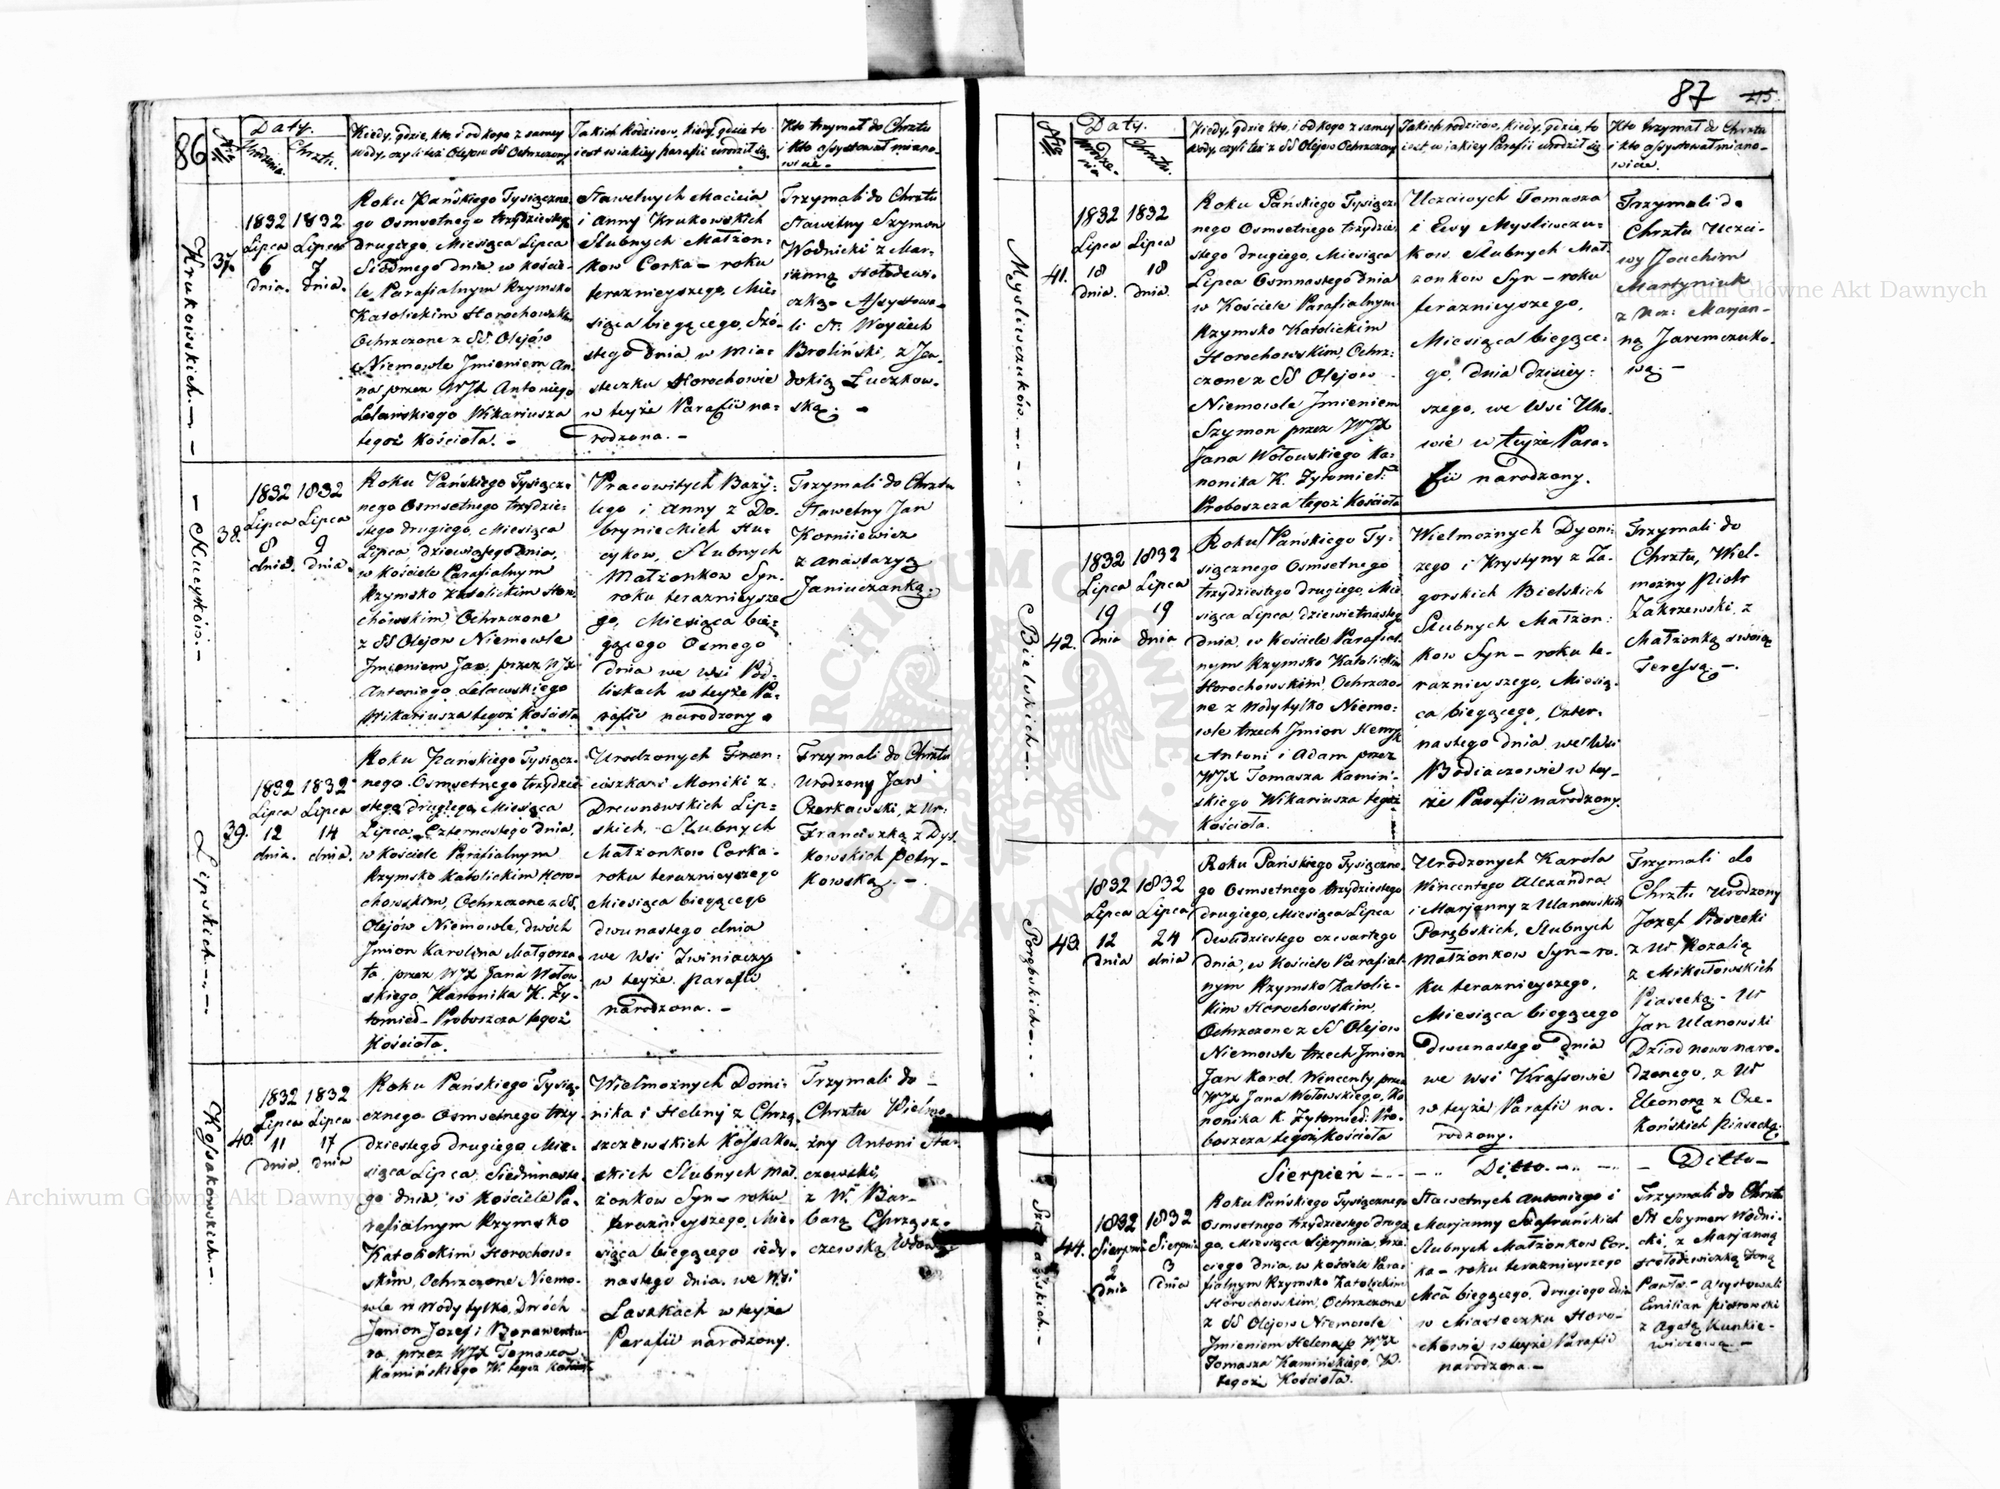 86
Nro
Daty.
Urodzenia. Chrztu.
Kiedy, gdzie, kto i od kogo z samey
wody, czyli też Olejów SS Ochrzczony
Jakich Rodziców, kiedy, gdzie to
iest w iakiey parafii urodził się.
Kto trzymał do Chrztu
i kto assystował miano-
wicie.
Krukowskich. —
37.
1832 1832
Lipca Lipca
6 7
dnia. dnia.
Roku Pańskiego Tysiączne
go Osmsetnego trzydziesteg
drugiego, Miesiąca Lipca
Siódmego dnia w koście-
le Parafialnym Rzymsko
Katolickim Horochowskim
Ochrzczone z SS. Olejów
Niemowle Jmieniem An
na przez WJX Antoniego
Lelawskiego Wikariusza
tegoż Kościoła. -
Sławetnych Macieia
i Anny Krukowskich
Slubnych Małżon-
kow Corka — roku
teraznieyszego, Mie-
siąca biegącego, Szó-
stego dnia w mia-
steczku Horochowie
w teyże Parafii na-
rodzona. -
Trzymali do Chrztu
Sławetny Szymon
Wodnicki z Mar-
ianną Hołodewi-
czką Assystowa-
li Sł. Woyciech
Broliński, z Jen-
dokią Łuczkow-
ską. -
— Hucyków. -
38.
1832 1832
Lipca Lipca
8 9
dnia. dnia.
Roku Pańskiego Tysiącz-
nego Osmsetnego trzydzie-
stego drugiego, Miesiąca
Lipca, dziewiątego dnia,
w kościele Parafialnym
Rzymsko Katolickim Horo
chowskim, Ochrzczone
z SS Olejow Niemowle
Jmieniem Jan, przez WJX
Antoniego Lelawskiego
Wikariusza tegoż Kościoła
Pracowitych Bazy-
lego i Anny z Do-
brynieckich Hu-
cykow, Slubnych
Małżonkow Syn-
roku teraznieysze
go, Miesiąca bie-
gącego Osmego
dnia we wsi Pod-
liskach w teyże Pa-
rafii narodzony.
Trzymali do Chrztu
Sławetny Jan
Korniiewicz
z Anastazyą
Janiuczanką.
Lipskich. —
39.
1832 1832
Lipca Lipca
12 14
dnia. dnia.
Roku Pańskiego Tysiącz-
nego Osmsetnego trzydzie
stego drugiego, Miesiąca
Lipca, Czternastego dnia,
w kościele Parafialnym
Rzymsko Katolickim Horo-
chowskim, Ochrzczone z SS.
Olejów Niemowle, dwóch
Jmion Karolina Małgorza-
ta, przez WJX Jana Wołow
skiego Kanonika K. Ży-
tomież- Proboszcza tegoż
Kościoła.
Urodzonych Fran-
ciszka i Moniki z
Drewnowskich Lip-
skich, Slubnych
Małżonkow Corka
roku teraznieyszego
Miesiąca biegącego
dwunastego dnia
we Wsi Zwiniaczy
w teyże parafii
narodzona. -
Trzymali do Chrztu
Urodzony Jan
Czerkawski, z Ur:
Franciszką z Dys
kowskich Petry-
kowską. -
Kossakowskich. -
40.
1832 1832
Lipca Lipca
11 17
dnia. dnia
Roku Pańskiego Tysią-
cznego Osmsetnego trzy-
dziestego drugiego, Mie-
siąca Lipca, Siedmnaste
go dnia, w Kościele Pa-
rafialnym Rzymsko
Katolickim Horochow-
skim, Ochrzczone Niemo-
wle z Wody tylko, Dwóch
Jmion Jozef i Bonawentu-
ra, przez WJX Tomasza
Kamińskiego W. tegoż Kościoła
Wielmożnych Domi-
nika i Heleny z Chrzą
szczewskich Kossakow
skich Slubnych mał
żonkow Syn - roku
teraznieyszego, Mie-
siąca biegącego iedy-
nastego dnia, we Wsi
Laszkach w teyże
Parafii narodzony.
Trzymali do
Chrztu Wielmo
żny Antoni Sta-
czewski,
z W. Bar-
barą Chrząsz-
czewską Wdową
87
215.
Nro
Daty.
Urodzenia Chrztu.
Kiedy, gdzie kto, i od kogo z samey
wody, czyli też z SS Olejow Ochrzczony
Jakich rodziców, kiedy, gdzie, to
iest w iakiey Parafii urodził się
Kto trzymał do Chrztu
i kto assystował miano-
wicie.
Mysliwczuków. —
41.
1832 1832
Lipca Lipca
18 18
dnia. dnia.
Roku Pańskiego Tysiącz-
nego Osmsetnego trzydzie
stego drugiego, Miesiąca
Lipca Osmnastego dnia
w Kościele Parafialnym
Rzymsko Katolickim
Horochowskim, Ochrz-
czone z SS Olejow
Niemowle Jmieniem
Szymon przez WJX
Jana Wołowskiego Ka-
nonika K. Żytomież:
Proboszcza tegoż Kościoła
Uczciwych Tomasza
i Ewy Mysliwczu-
kow, Slubnych Mał-
żonkow Syn - roku
teraznieyszego,
Miesiąca biegące-
go, dnia dzisiey-
szego, we Wsi Uho-
wie w teyże Para-
fii narodzony.
Trzymali do
Chrztu Uczci-
wy Joachim
Martyniuk
z Marjan-
ną Jaremczuko-
wą. -
Bielskich —
42.
1832 1832
Lipca Lipca
19 19
dnia dnia
Roku Pańskiego Ty-
siącznego Osmsetnego
trzydziestego drugiego, Mie
siąca Lipca dziewietnastego
dnia, w Kościele Parafial-
nym Rzymsko Katolickim
Horochowskim, Ochrzczo-
ne z Wody tylko Niemo-
wle trzech Jmion Henryk
Antoni i Adam przez
WJX Tomasza Kamiń-
skiego Wikariusza tegoż
Kościoła.
Wielmożnych Dyoni-
zego i Krystyny z Za-
gorskich Bielskich
Slubnych Małżon-
kow Syn - roku te-
raznieyszego, Miesią-
ca biegącego, Czter-
nastego dnia, we Wsi
Bodiaczowie w tey-
że Parafii narodzony
Trzymali do
Chrztu, Wiel-
możny Piotr
Zakrzewski, z
Małżonką swoią
Teressą. -
Porębskich
43.
1832 1832
Lipca Lipca
12 24
dnia dnia
Roku Pańskiego Tysiączne-
go Osmsetnego trzydziestego
drugiego, Miesiąca Lipca
dwudziestego czwartego
dnia, w Kościele Parafial-
nym Rzymsko Katolic-
kim Horochowskim,
Ochrzczone z SS Olejow
Niemowle trzech Jmion
Jan Karol Wincenty przez
WJX Jana Wołowskiego, Ka
nonika K. Żytomież: Pro-
boszcza tegoż Kościoła
Urodzonych Karola
Wincentego Alexandra
i Marjanny z Ulanowskich
Porębskich, Slubnych
Małżonkow Syn - ro-
ku teraznieyszego,
Miesiąca biegącego
dwunastego dnia
we wsi Krassowie
w teyże Parafii na-
rodzony.
Trzymali do
Chrztu Urodzony
Jozef Piasecki
z Ur. Rozalią
z Mikułowskich
Piasecką - Ur
Jan Ulanowski
Dziad nowo naro-
dzonego, z Ur
Eleonorą z Cze-
końskich Piasecką.
Sierpień — Ditto — Ditto —
44.
1832 1832
Sierpnia Sierpnia
2 3
dnia dnia
Roku Pańskiego Tysiącznego
Osmsetnego trzydziestego drugie
go, Miesiąca Sierpnia, trze-
ciego dnia, w kościele Para-
fialnym Rzymsko Katolickim
Horochowskim, Ochrzczone
z SS Olejow Niemowle
Jmieniem Helena, p. WJX
Tomasza Kamińskiego, W.
tegoż Kościoła.
Sławetnych Antoniego i
Marjanny Szafrańskich
Slubnych Małżonkow Cor-
ka - roku teraznieyszego
Mca biegącego, drugiego dnia
w Miasteczku Horo-
chowie w teyże Parafii
narodzona. -
Trzymali do Chrztu
Sł Szymon Wodni-
cki, z Marjanną
Hołodewiczką Żoną
Pawła - Assystowali
Emilian Piotrowski
z Agatą Kunkie-
wiczową. -
Archiwum Główne Akt Dawnych
Archiwum Główne Akt Dawnych
ARCHIWUM GŁÓWNE AKT DAWNYCH